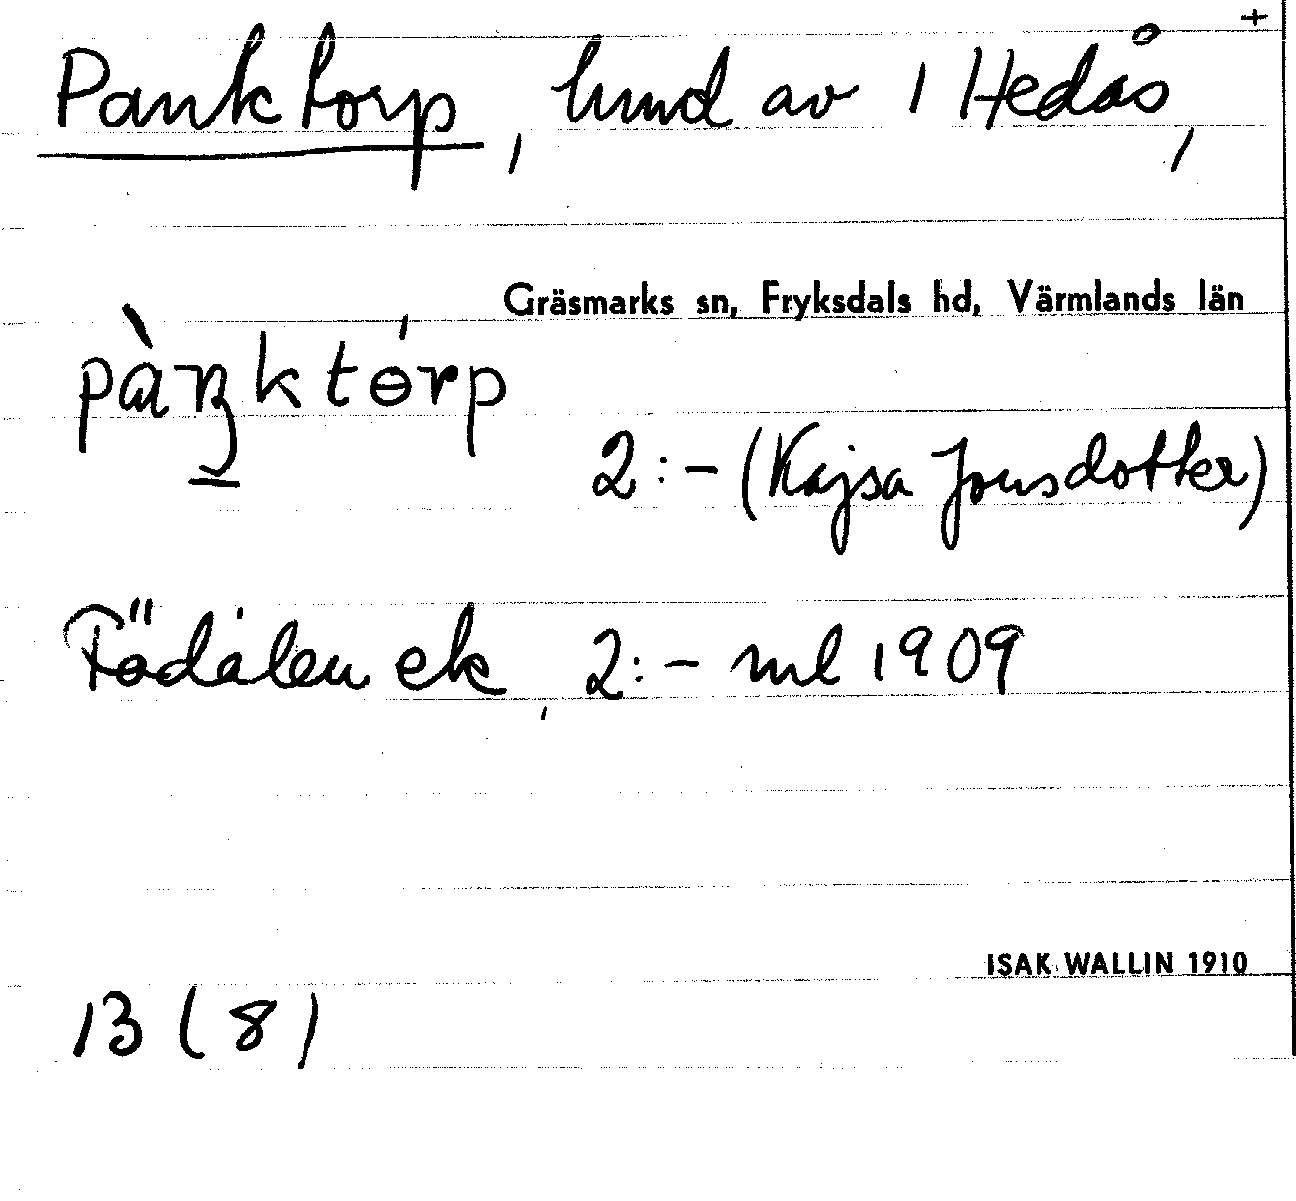 +
Panktorp, lund av 1 Hedås,
Gräsmarks sn, Fryksdals hd, Värmlands län
2:- (Kajsa Jonsdotter)
ek, 2:- ml 1909
ISAK WALLIN 1910
13 (8)